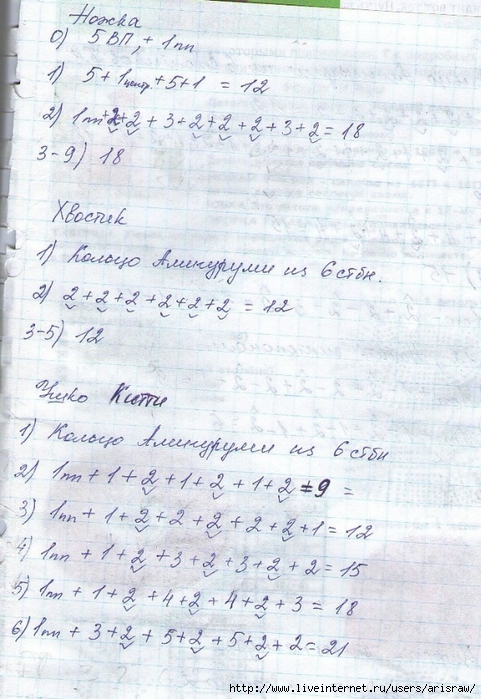 Ножка
0) 5 ВП, + 1пп
1) 5 + 1центр. + 5 + 1 = 12
2) 1пп + 2 + 2 + 3 + 2 + 2 + 2 + 3 + 2 = 18
3-9) 18
Хвостик
1) Кольцо Амигуруми из 6 стбн.
2) 2 + 2 + 2 + 2 + 2 + 2 = 12
3-5) 12
Ушко Китти
1) Кольцо Амигуруми из 6 стбн
2) 1пп + 1 + 2 + 1 + 2 + 1 + 2 = 9 =
3) 1пп + 1 + 2 + 2 + 2 + 2 + 2 + 1 = 12
4) 1пп + 1 + 2 + 3 + 2 + 3 + 2 + 2 = 15
5) 1пп + 1 + 2 + 4 + 2 + 4 + 2 + 3 = 18
6) 1пп + 3 + 2 + 5 + 2 + 5 + 2 + 2 = 21
http://www.liveinternet.ru/users/arisraw/